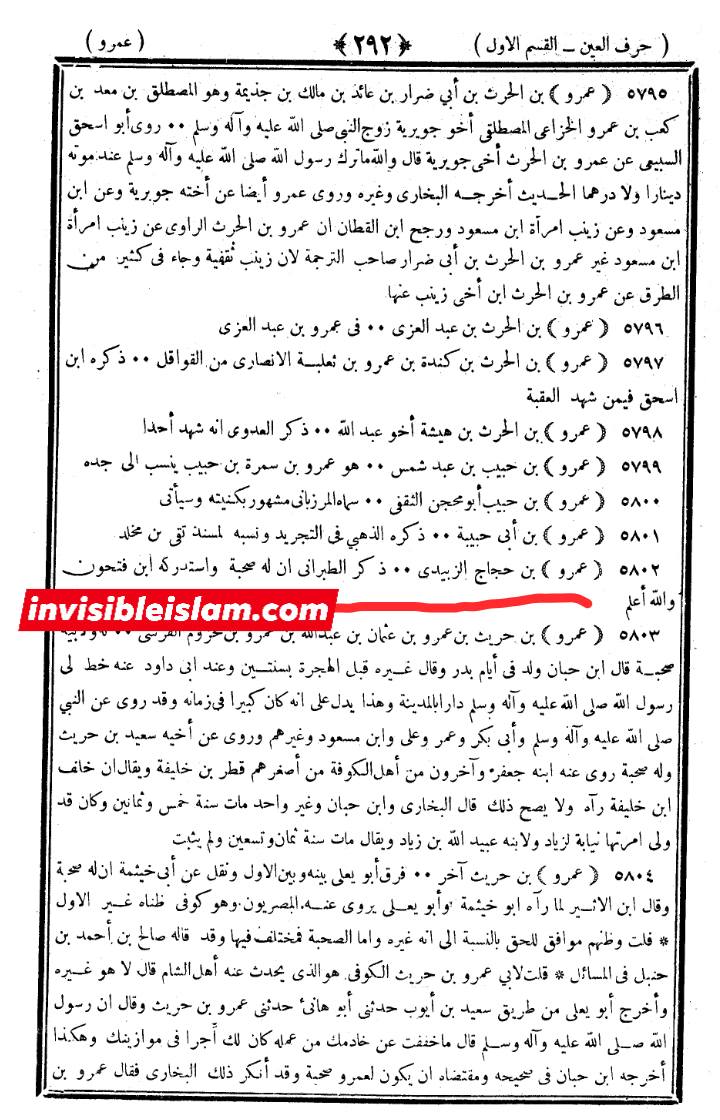 ( حرف العين ــ القسم الاول ) ﴿ ٢٩٢ ﴾ ( عمرو )
٥٧٩٥ ( عمرو ) بن الحرث بن أبي ضرار بن عائذ بن مالك بن جذيمة وهو المصطلق بن معد بن
كعب بن عمرو الخزاعى المصطلقى أخو جويرية زوج النبى صلى الله عليه وآله وسلم ٠٠ روى أبو اسحق
السبيعى عن عمرو بن الحرث أخى جويرية قال والله ماترك رسول الله صلى الله عليه وآله وسلم عند موته
دينارا ولا درهما الحديث أخرجه البخارى وغيره وروى عمرو أيضا عن أخته جويرية وعن ابن
مسعود وعن زينب امرآة ابن مسعود ورجح ابن القطان ان عمرو بن الحرث الراوى عن زينب امرأة
ابن مسعود غير عمرو بن الحرث بن أبى ضرار صاحب الترجمة لان زينب ثقفية وجاء فى كثير من
الطرق عن عمرو بن الحرث ابن أخى زينب عنها
٥٧٩٦ ( عمرو ) بن الحرث بن عبد العزى ٠٠ فى عمرو بن عبد العزى
٥٧٩٧ ( عمرو ) بن الحرث بن كندة بن عمرو بن ثعلبة الانصارى من القواقل ٠٠ ذكره ابن
اسحق فيمن شهد العقبة
٥٧٩٨ ( عمرو ) بن الحرث بن هيشة أخو عبد الله ٠٠ ذكر العدوى انه شهد أحدا
٥٧٩٩ ( عمرو ) بن حبيب بن عبد شمس ٠٠ هو عمرو بن سمرة بن حبيب ينسب الى جده
٥٨٠٠ ( عمرو ) بن حبيب أبو محجن الثقفى ٠٠ سماه المرزبانى مشهور بكنيته وسيأتى
٥٨٠١ ( عمرو ) بن أبى حبيبة ٠٠ ذكره الذهبي فى التجريد ونسبه لمسند تقى بن مخلد
٥٨٠٢ ( عمرو ) بن حجاج الزبيدى ٠٠ ذكر الطبرانى ان له صحبة واستدركه ابن فتحون
والله أعلم
invisibleislam.com
٥٨٠٣ ( عمرو ) بن حريث بن عمرو بن عثمان بن عبدالله بن عمرو بن مخزوم القرشى ٠٠ له ولابيه
صحبة قال ابن حبان ولد فى أيام بدر وقال غيره قبل الهجرة بسنتين وعند ابى داود عنه خط لى
رسول الله صلى الله عليه وآله وسلم دارا بالمدينة وهذا يدل على انه كان كبيرا فى زمانه وقد روى عن النبي
صلى الله عليه وآله وسلم وأبى بكر وعمر وعلى وابن مسعود وغيرهم وروى عن أخيه سعيد بن حريث
وله صحبة روى عنه ابنه جعفر وآخرون من أهل الكوفة من أصغرهم قطر بن خليفة ويقال ان خلف
ابن خليفة رآه ولا يصح ذلك قال البخارى وابن حبان وغير واحد مات سنة خمس وثمانين وكان قد
ولى امرتها نيابة لزياد ولابنه عبيد الله بن زياد ويقال مات سنة ثمان وتسعين ولم يثبت
٥٨٠٤ ( عمرو ) بن حريث آخر ٠٠ فرق أبو يعلى بينه وبين الاول ونقل عن أبى خيثمة ان له صحبة
وقال ابن الاثير لما رآه ابو خيثمة وأبو يعلى يروى عنه المصريون وهو كوفى ظناه غير الاول
* قلت وظنهم موافق للحق بالنسبة الى انه غيره واما الصحبة فمختلف فيها وقد قاله صالح بن أحمد بن
حنبل فى المسائل * قلت لابي عمرو بن حريث الكوفى هو الذى يحدث عنه أهل الشام قال لا هو غيره
وأخرج أبو يعلى من طريق سعيد بن أيوب حدثنى أبو هانئ حدثنى عمرو بن حريث وقال ان رسول
الله صلى الله عليه وآله وسلم قال ماخففت عن خادمك من عمله كان لك أجرا فى موازينك وهكذا
أخرجه ابن حبان فى صحيحه ومقتضاه ان يكون لعمرو صحبة وقد أنكر ذلك البخارى فقال عمرو بن